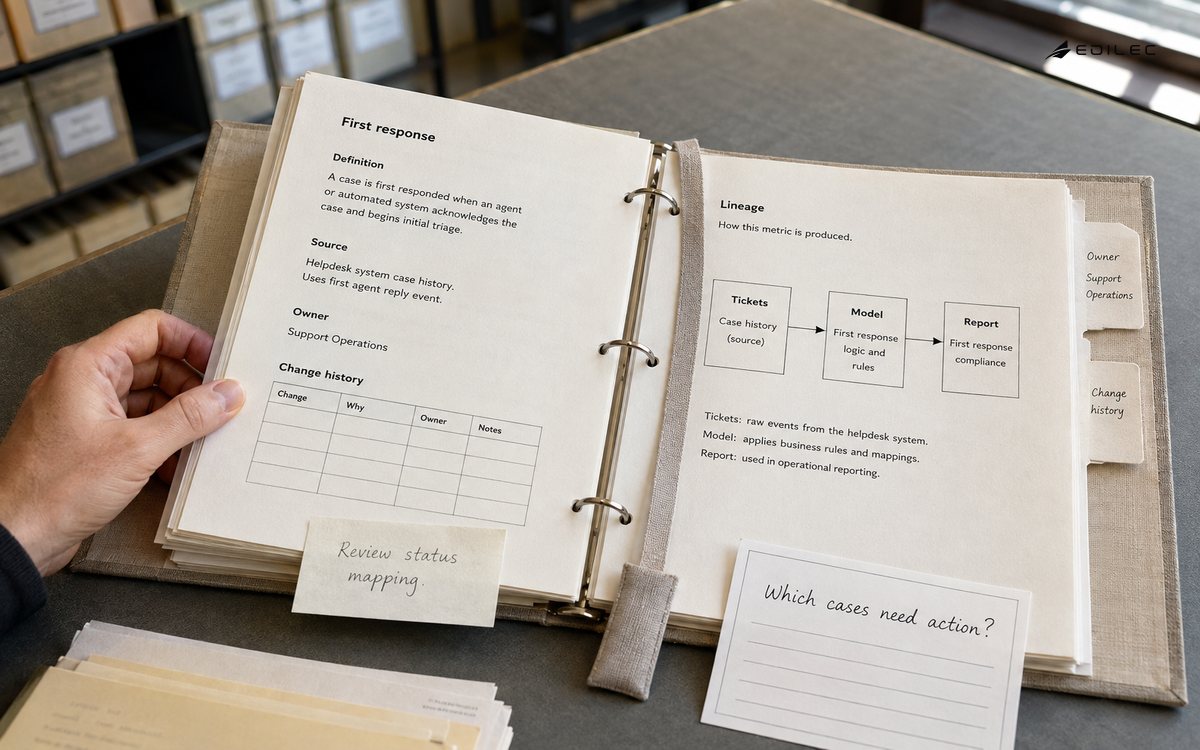 EDILEC
First response
Definition
A case is first responded when an agent
or automated system acknowledges the
case and begins initial triage.
Source
Helpdesk system case history.
Uses first agent reply event.
Owner
Support Operations
Change history
Change Why Owner Notes
Review status
mapping.
Lineage
How this metric is produced.
Tickets
Case history
(source)
Model
First response
logic and
rules
Report
First response
compliance
Tickets: raw events from the helpdesk system.
Model: applies business rules and mappings.
Report: used in operational reporting.
Owner
Support
Operations
Change
history
Which cases need action?